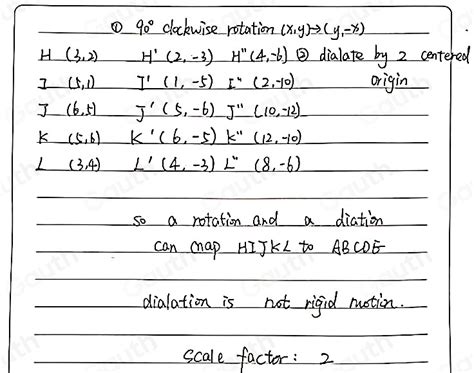 ① 90° clockwise rotation (x,y)→(y,-x)
H (3,2) H' (2,-3) H" (4,-6) ② dialate by 2 centered
I (5,1) I' (1,-5) I" (2,-10) origin
J (6,5) J' (5,-6) J" (10,-12)
K (5,6) K' (6,-5) K" (12,-10)
L (3,4) L' (4,-3) L" (8,-6)
so a rotation and a diation
can map HIJKL to ABCDE
dialation is not rigid motion.
scale factor: 2